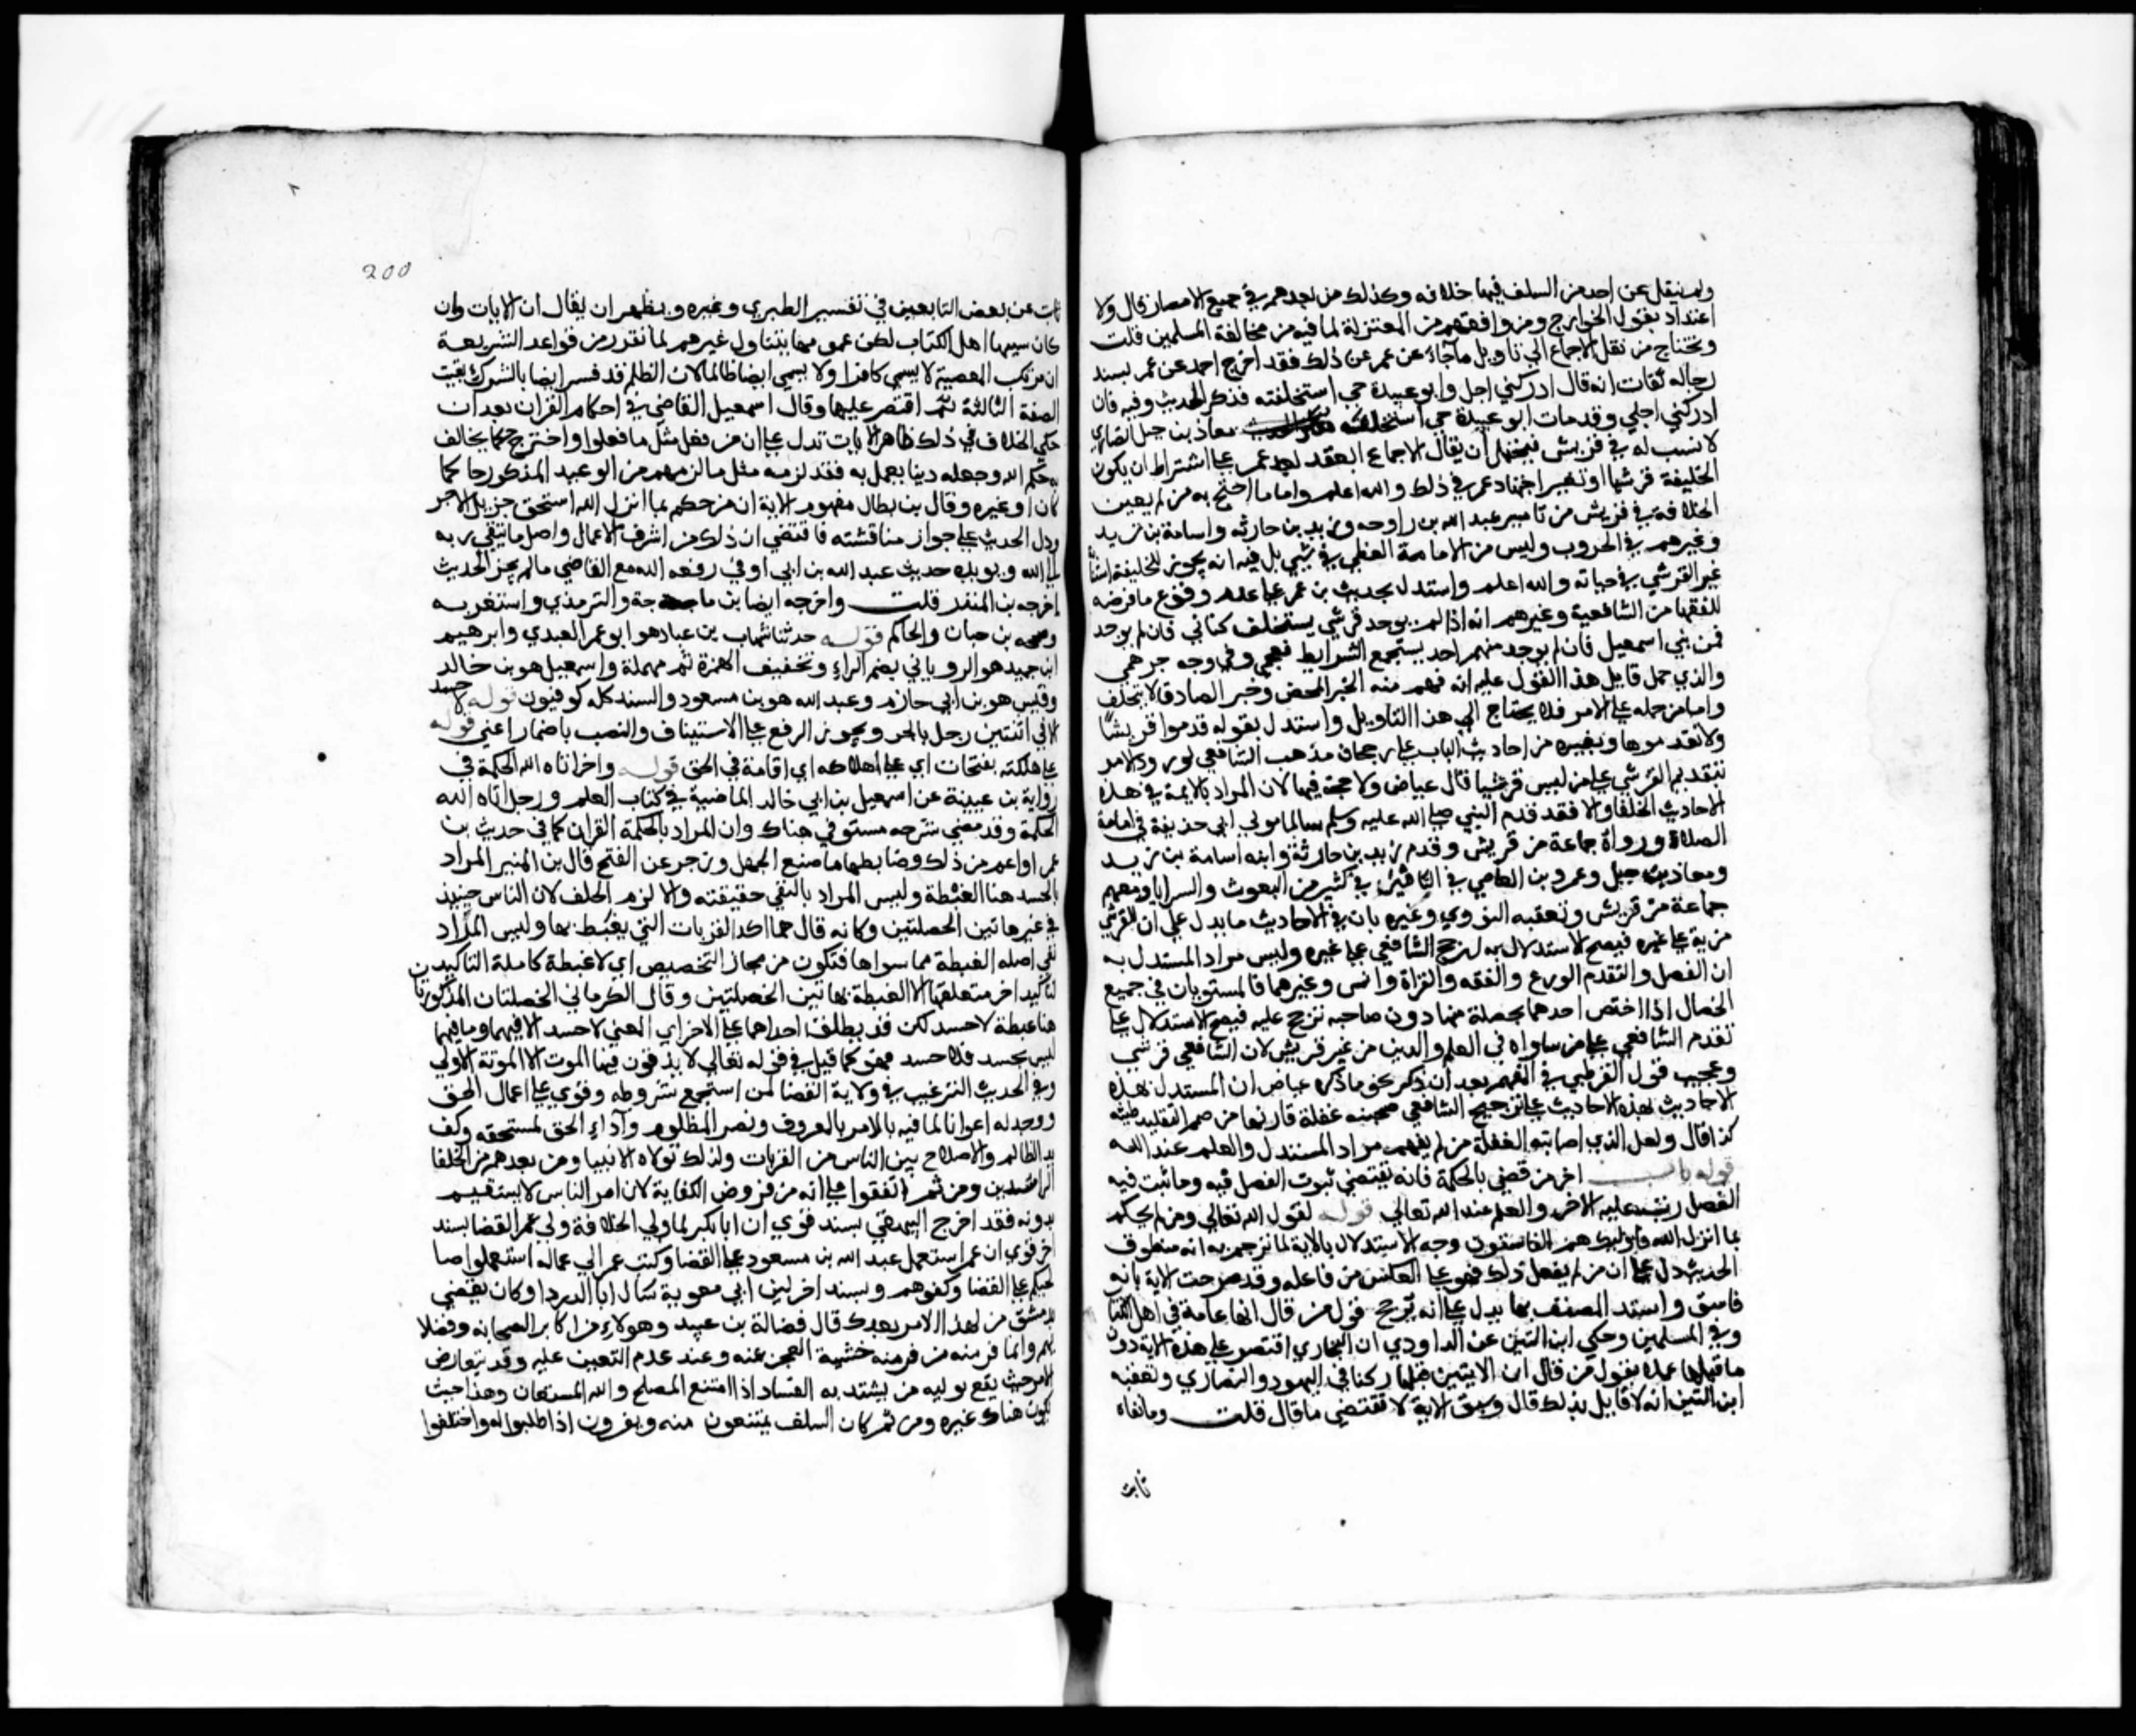 ولم ينقل عن احد من السلف فيها خلاف وكذلك من بعدهم في جميع الامصار قال ولا
اعتداد بقول الخوارج ومن وافقهم من المعتزلة لما فيه من مخالفة المسلمين قلت
ويحتاج من نقل الاجماع الي تاويل ماجاء عن عمر من ذلك فقد اخرج احمد عن عمر بسند
رجاله ثقات انه قال ادركني اجل وابو عبيدة حي استخلفته فذكر الحديث وفيه فان
ادركني اجلي وقد مات ابو عبيدة حي استخلفته معاذ بن جبل انصاري
لا نسب له في قريش فيحتمل ان يقال الاجماع انعقد بعد عمر علي اشتراط ان يكون
الخليفة قرشيا او تغير اجتهاد عمر في ذلك والله اعلم واما ما احتج به من لم يعين
الخلافة في قريش من تامير عبد الله بن رواحه وزيد بن حارثه واسامة بن زيد
وغيرهم في الحروب وليس من الامامة العظمي في شي بل فيه انه يجوز للخليفة استنا
غير القرشي في حياته والله اعلم واستدل بحديث بن عمر علي عدم وقوع ما فرضه
الفقها من الشافعية وغيرهم انه اذا لم يوجد قرشي يستخلف كناني فان لم يوجد
فمن بني اسمعيل فان لم يوجد منهم احد يستجمع الشرايط فعجمي وفي وجه جرهمي
والذي حمل قايل هذا القول عليه انه فهم منه الخبر المحض وخبر الصادق لا يتخلف
واما من حمله علي الامر فلا يحتاج الي هذا التاويل واستدل بقوله قدموا قريشا
ولا تقدموها وبغيره من احاديث الباب علي رجحان مذهب الشافعي لورود الامر
بتقديم القرشي علي من ليس قرشيا قال عياض ولا حجة فيها لان المراد بالايمة في هذه
الاحاديث الخلفا والا فقد قدم النبي صلي الله عليه وسلم سالما مولي ابي حذيفة في امامة
الصلاة ووراة جماعة من قريش وقدم زيد بن حارثة وابنه اسامة بن زيد
ومعاذ بن جبل وعمرو بن العاصي في التامير في كثير من البعوث والسرايا ومعهم
جماعة من قريش وتعقبه النووي وغيره بان في الاحاديث ما يدل علي ان للقرشي
مزية علي غيره فيصح الاستدلال به لترجح الشافعي علي غيره وليس مراد المستدل به
ان الفضل والتقدم الورع والفقه والقراة وانس وغيرهما فالمستويان في جميع
الخصال اذا اختص احدهما بخصلة منها دون صاحبه ترجح عليه فيصح الاستدلال علي
تقدم الشافعي علي من ساواه في العلم والدين من غير قريش لان الشافعي قرشي
وعجيب قول القرطبي في المفهم بعد ان ذكر نحو ما ذكره عياض ان المستدل بهذه
الاحاديث بهذه الاحاديث علي ترجيح الشافعي صحبته غفلة قارنها من صميم التقليد طيشه
كذا قال ولعل الذي اصابته الغفلة من لم يفهم مراد المستدل والعلم عند الله
قوله باب اجر من قضي بالحكمة فانه يقتضي ثبوت الفضل فيه وما ثبت فيه
الفضل رتب عليه الاجر والعلم عند الله تعالي قوله لقول الله تعالي ومن لم يحكم
بما انزل الله فاوليك هم الفاسقون وجه الاستدلال بالاية لما ترجم به انه منطوق
الحديث دل علي ان من لم يفعل ذلك فهو علي العكس من فاعله وقد صرحت الاية بانه
فاسق واستد المصنف بها يدل علي انه يرجح قول من قال انها عامة في اهل الكتا
وفي المسلمين وحكي ابن التين عن الداودي ان البخاري اقتصر علي هذه الاية دون
ما قبلها عملا بقول من قال ان الايتين قبلها ركنا في اليهود والنصاري وتعقبه
ابن التين انه لا قايل بذلك قال ونسق الاية لا تقتضي ما قال قلت وما نفاه
ثابت
200
ثابت عن بعض التابعين في تفسير الطبري وغيره ويظهر ان يقال ان الايات وان
كان سببها اهل الكتاب لكن عمومها يتناول غيرهم لما تقرر من قواعد الشريعة
ان مرتكب المعصية لا يسمي كافرا ولا يسمي ايضا ظالما لان الظلم قد فسر ايضا بالشرك بقيت
الصفة الثالثة ثم اقتصر عليها وقال اسمعيل القاضي في احكام القران بعد ان
حكي الخلاف في ذلك ظاهر الايات تدل علي ان من فعل مثل ما فعلوا واخترع حكما يخالف
به حكم الله وجعله دينا يعمل به فقد لزمه مثل ما لزمهم من الوعيد المذكور حاكما
كان او غيره وقال بن بطال مفهوم الاية ان من حكم بما انزل الله استحق جزيل الاجر
ودل الحديث علي جواز منافسته فاقتضي ان ذلك من اشرف الاعمال واصل ما يتقرب به
الي الله ويويده حديث عبد الله بن ابي اوفي رفعه الله مع القاضي ما لم يجز الحديث
اخرجه بن المنذر قلت واخرجه ايضا بن ماجة والترمذي واستغربه
وصححه بن حبان والحاكم قوله حدثنا شهاب بن عباد هو ابو عمر العبدي وابرهيم
ابن حميد هو الروياني بضم الراء وتخفيف الهمزة ثم مهملة واسمعيل هو بن خالد
وقيس هو بن ابي حازم وعبد الله هو بن مسعود والسند كله كوفيون قوله لا حسد
الا في اثنتين رجل بالجر ويجوز الرفع علي الاستيناف والنصب باضمار اعني قوله
علي هلكته بفتحات اي علي اهلاكه اي اقامة في الحق قوله واخر اتاه الله الحكمة في
رواية بن عيينة عن اسمعيل بن ابي خالد الماضية في كتاب العلم ورجل اتاه الله
الحكمة وقد مضي شرحه مستوفي هناك وان المراد بالحكمة القران كما في حديث بن
عمر او اعم من ذلك وضابطها ما منع الجهل وزجر عن القبح قال بن المنير المراد
بالحسد هنا الغبطة وليس المراد بالنفي حقيقته والا لزم الخلف لان الناس حينيذ
في غير هاتين الخصلتين وكانه قال هما اكد القربات التي يغبط بها وليس المراد
نفي اصله الغبطة مما سواها فتكون من مجاز التخصيص اي لا غبطة كاملة التاكيدن
لتاكيد اخر متعلقها الا الغبطة بهاتين الخصلتين وقال الكرماني الخصلتان المذكورتان
هنا غبطة لا حسد لكن قد يطلق احداهما علي الاخر اي المعني لا حسد الا فيهما وما فيهما
ليس بحسد فلا حسد فهو كما قيل في قوله تعالي لا يذوقون فيها الموت الا الموتة الاولي
وفي الحديث الترغيب في ولاية القضا لمن استجمع شروطه وقوي علي اعمال الحق
ووجد له اعوانا لما فيه بالامر بالمعروف ونصر المظلوم وآداء الحق لمستحقه وكف
يد الظالم والاصلاح بين الناس من القربات ولذلك تولاه الانبيا ومن بعدهم من الخلفا
الراشدين ومن ثم اتفقوا علي انه من فروض الكفاية لان امر الناس لا يستقيم
بدونه فقد اخرج البيهقي بسند قوي ان ابا بكر لما ولي الخلافة ولي عمر القضا بسند
اخر قوي ان عمر استعمل عبد الله بن مسعود علي القضا وكتب عمر الي عماله استعملوا صا
لحيكم علي القضا وكفوهم وبسند اخر لين ابي معوية سال ابا الدردا وكان يقضي
بدمشق من لهذا الامر بعدك قال فضالة بن عبيد وهولاء من اكابر الصحابه وفضلا
يهم وانما فر منه من فر منه خشية العجز عنه وعند عدم التعين عليه وقد يتعارض
الامر حيث يقع توليه من يشتد به الفساد اذا امتنع المصلح والله المستعان وهذا حيث
يكون هناك غيره ومن ثم كان السلف يمتنعون منه ويفرون اذا طلبوا له واختلفوا